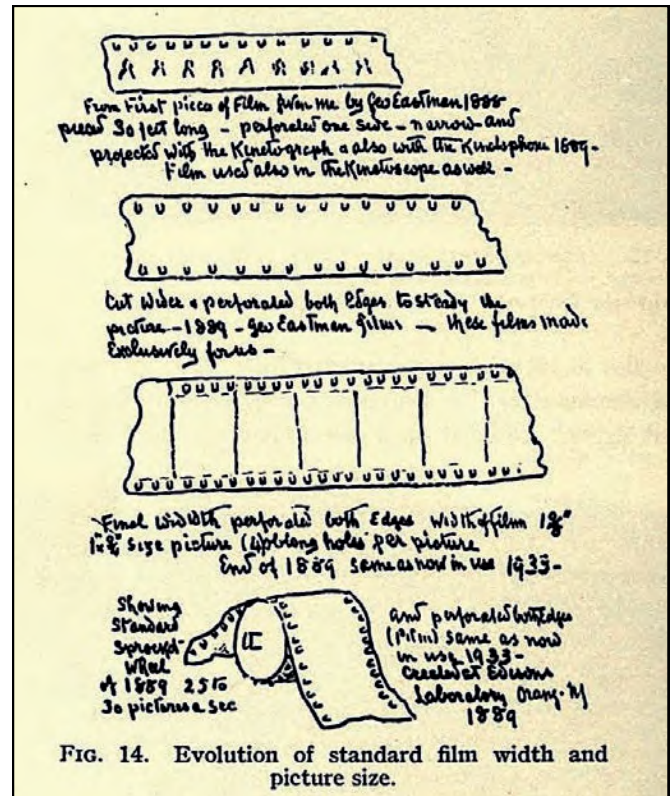 From First piece of Film given me by Geo Eastman 1888
pieces 30 feet long - perforated one side - narrow and
projected with the Kinetograph & also with the Kinetophone 1889 -
Film used also in the Kinetoscope as well -
Cut wider & perforated both Edges to steady the
picture - 1889 - Geo Eastman films - these films made
Exclusively for us -
Final Width perforated both Edges width of film 1⅜"
1"x¾" size picture (4) oblong holes per picture
End of 1889 same as now in use 1933 -
Showing
Standard
Sprocket
Wheel
of 1889 25 to
30 pictures a sec
and perforated both Edges
(film) same as now
in use 1933 -
Created at Edisons
Laboratory Orange NJ
1889
FIG. 14. Evolution of standard film width and
picture size.